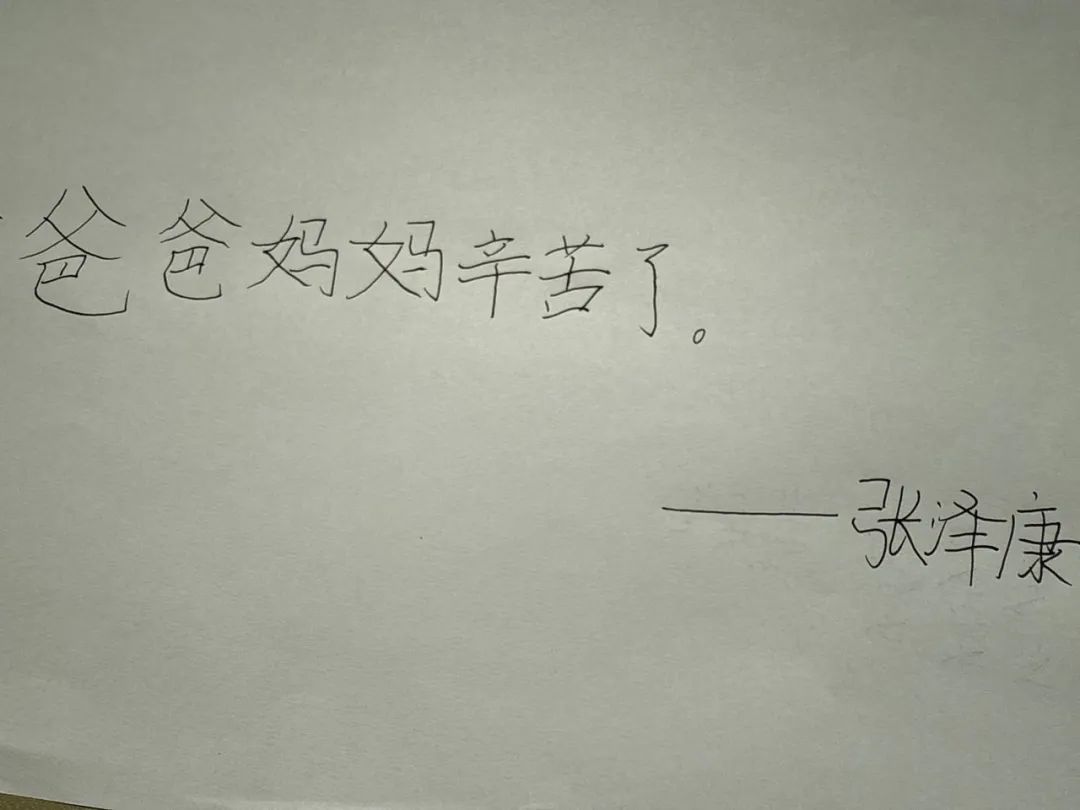 爸爸妈妈辛苦了。
——张泽康